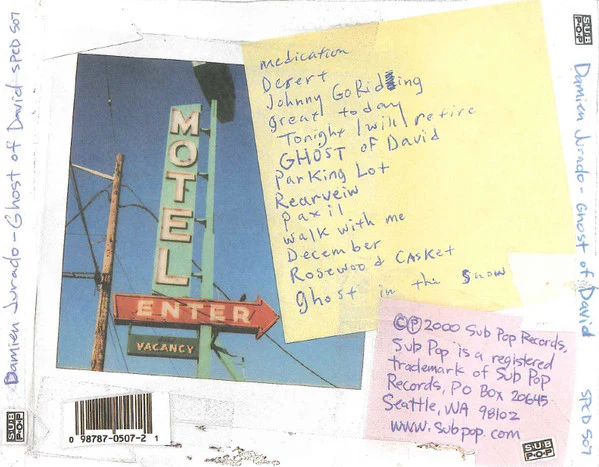 Damien Jurado - Ghost of David SPCD 507
SUB
POP
medication
Desert
Johnny Go Riding
great today
Tonight I will retire
GHOST OF David
Parking Lot
Rearveiw
paxil
walk with me
December
Rosewood Casket
ghost in the snow
MOTEL
ENTER
VACANCY
©℗ 2000 Sub Pop Records,
Sub Pop is a registered
trademark of Sub Pop
Records, PO Box 20645
Seattle, WA 98102
www.subpop.com
SUB
POP
0 98787-0507-2 1
SUB
POP
Damien Jurado - Ghost of David SPCD 507
SUB
POP